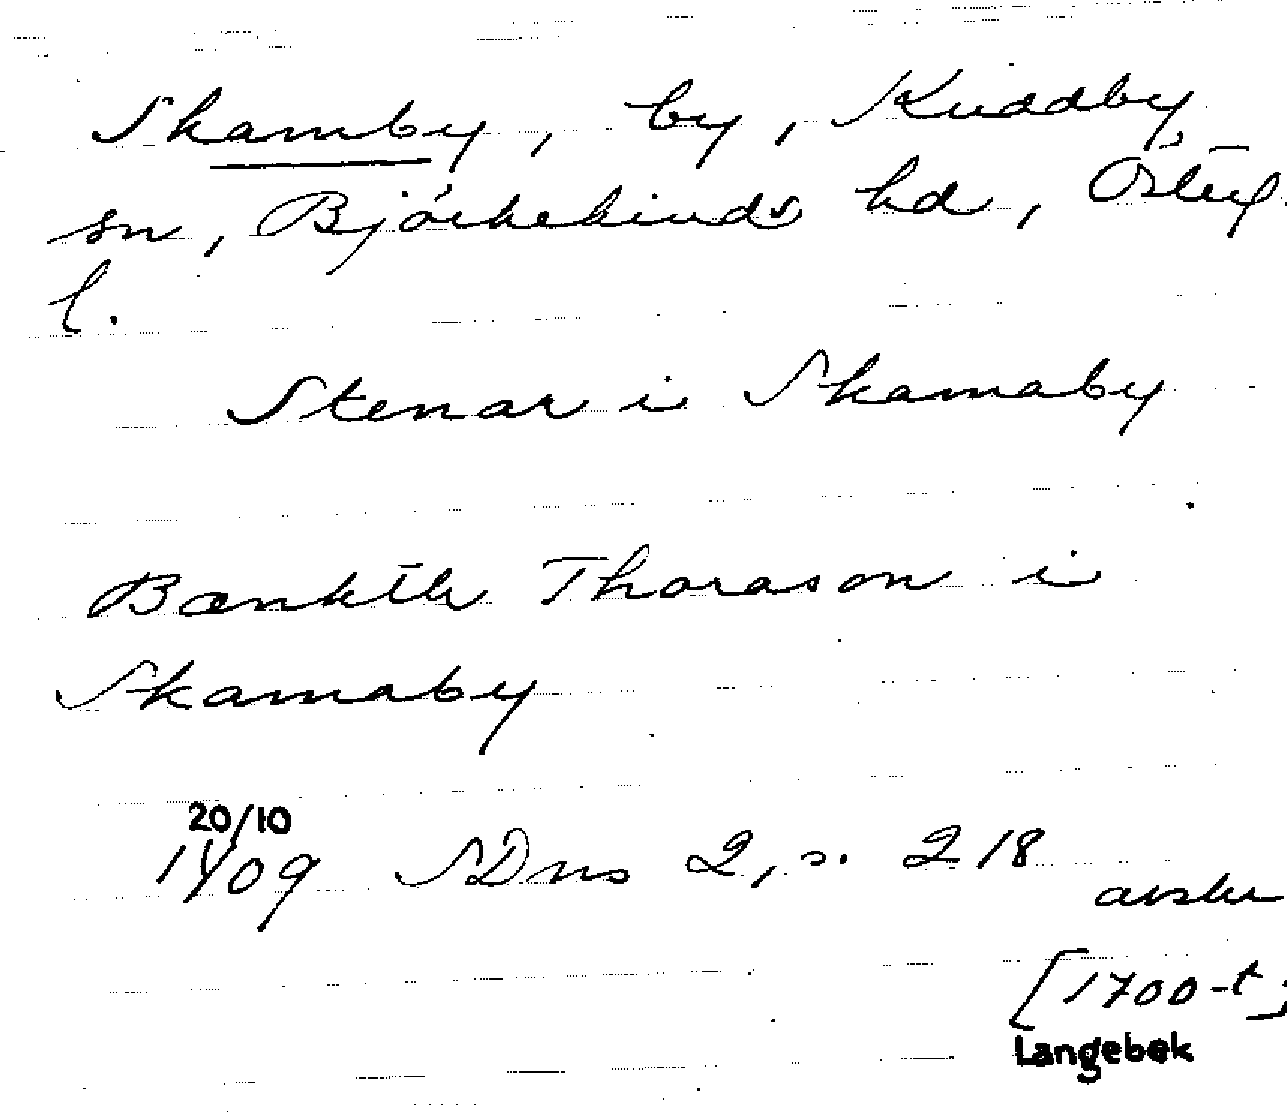 Skamby, by, Kuddby
sn, Björkekinds hd, Östergl
l.
Stenar i Skamaby
Bænkth Thorason i
Skamaby
20/10
1409 SDns 2, s. 218
avskr
[1700-t]
Langebek